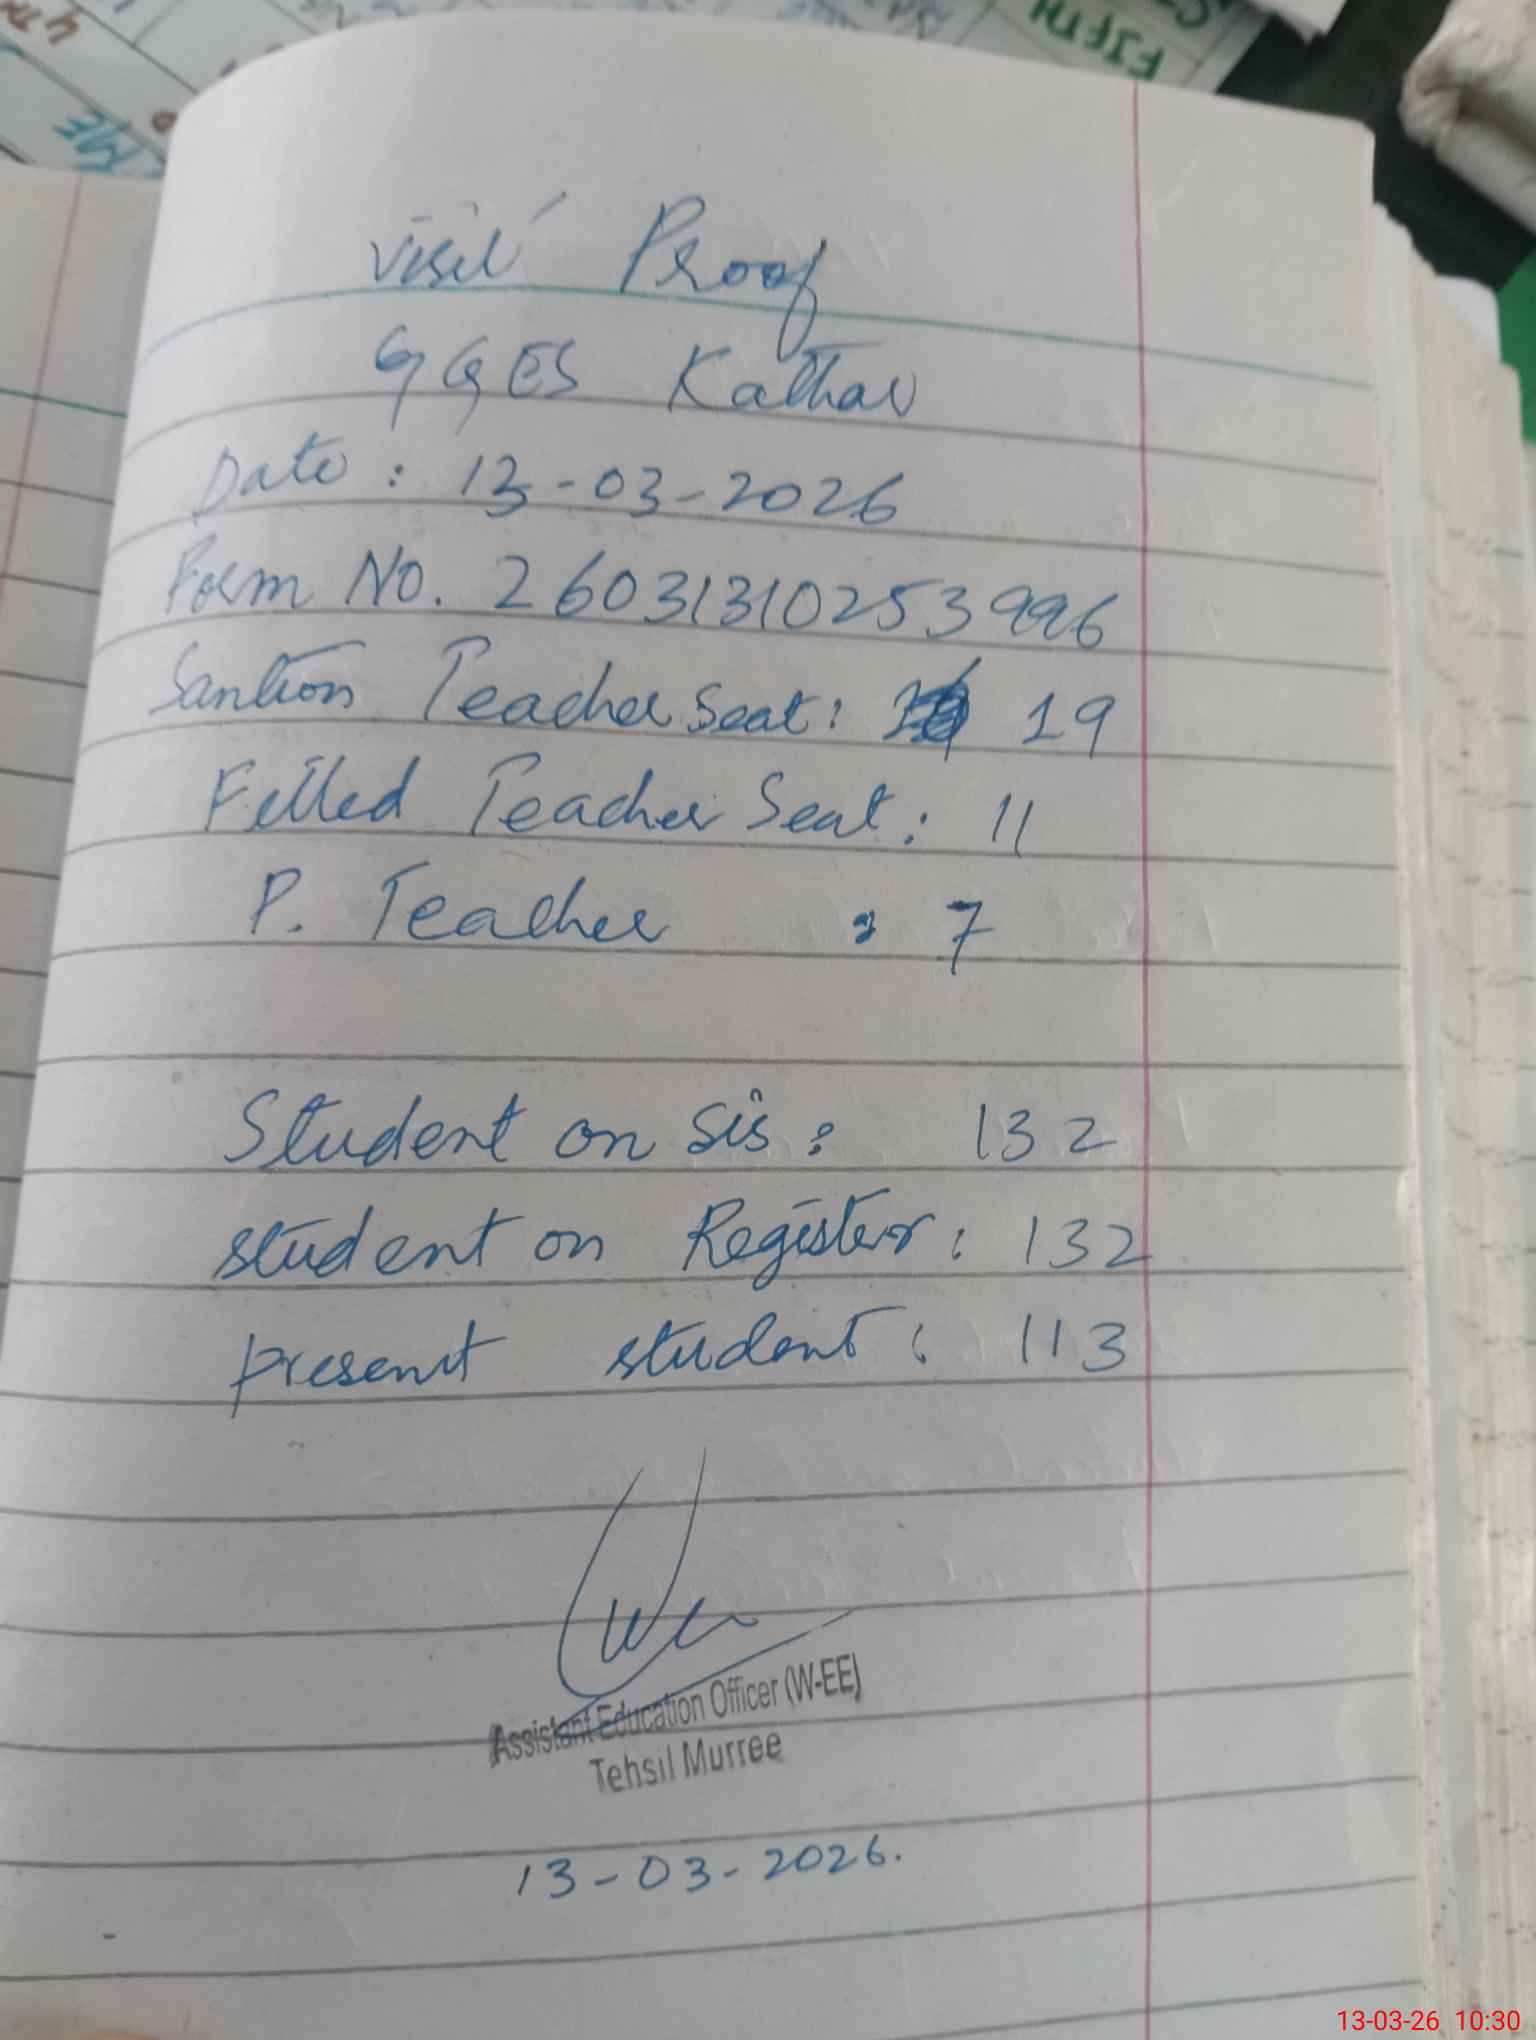 Visit Proof
GGES Kathar
Date : 13-03-2026
Form No. 260313102253996
Santion Teacher Seat : 19
Filled Teacher Seat : 11
P. Teacher : 7
Student on Sis : 132
student on Register : 132
present student : 113
Assistant Education Officer (W-EE)
Tehsil Murree
13-03-2026.
13-03-26 10:30